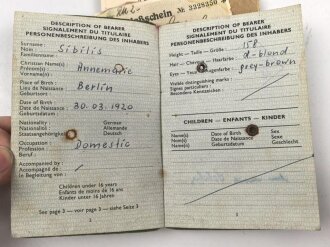 № 3328350
DESCRIPTION OF BEARER
SIGNALEMENT DU TITULAIRE
PERSONENBESCHREIBUNG DES INHABERS
Surname
Nom
Name
Sibilis
Christian Name(s)
Prénom(s)
Vorname(n)
Annemarie
Date of Birth
Lieu de Naissance
Geburtsort
Berlin
Date of Birth
Date de Naissance
Geburtsdatum
30.03.1920
Nationality German
Nationalité Allemande
Staatsangehörigkeit Deutsch
Occupation
Profession
Beruf
Domestic
Accompanied by
Accompagné de
In Begleitung von
Children under 16 years
Enfants de moins de 16 ans
Kinder unter 16 Jahren
See page 3 — voir page 3 — siehe Seite 3
2
DESCRIPTION OF BEARER
SIGNALEMENT DU TITULAIRE
PERSONENBESCHREIBUNG DES INHABERS
Height - Taille - Größe 158
Hair - Cheveux - Haarfarbe d-blond
Eyes - Yeux - Augenfarbe grey-brown
Visible distinguishing marks
Signes particuliers
Besondere Kennzeichen
CHILDREN - ENFANTS - KINDER
Name(s) Date of Birth Sex
Nom(s) Date de Naissance Sexe
Name(n) Geburtsdatum Geschlecht
3